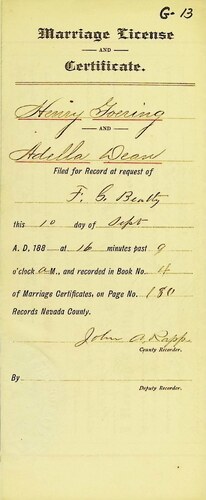 G-13
Marriage License
AND
Certificate.
Henry Goering
AND
Adella Dean
Filed for Record at request of
F. G. Beatty
this 10 day of Sept
A. D. 188 at 16 minutes past 9
o'clock A M., and recorded in Book No. 4
of Marriage Certificates, on Page No. 180
Records Nevada County.
John A. Rapp
County Recorder.
By
Deputy Recorder.